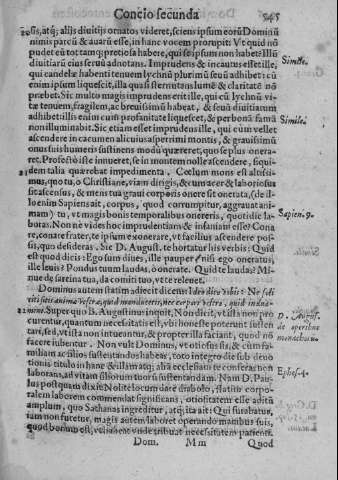 Concio secunda 545
eosque, atque; alijs diuitijs ornatos videret, sciens ipsum eorũ Dominũ
nimis parcũ & auarũ esse, in hanc vocem prorupit: Vt quid nõ
pudet eũ tot tamque; pretiosa habere, qui se ipsum non habet? Ille
diuitiarũ eius seruũ adnotans. Imprudens & incautus esset ille,
qui candelæ habenti tenuem lychnũ plurimũ seuũ adhibet: cũ
enim ipsum liquescit, illa quasi sternutans lumẽ & claritatẽ nõ
præbet. Sic multo magis imprudens erit ille, qui cũ lychnũ vitæ
tenuem, fragilem, ac breuissimũ habeat, & seuũ diuitiarum
adhibet: illis enim cum profanitate liquescet, & per bonã famã
non illuminabit. Sic etiam esset imprudens ille, qui cùm vellet
ascendere in cacumen alicuius asperrimi montis, & grauissimũ
onus suis humeris sustinens modũ quæreret, quo se plus oneraret.
Profectò isse innueret, se in montem nolle ascendere, siquidem
talia quærebat impedimenta. Cœlum mons est altissimus,
quo tu, ò Christiane, viam dirigis, & cum acer & laboriosus
sit ascensus, & mens tua graui corporis onere sit onerata, (de illo
enim Sapiens ait, corpus, quod corrumpitur, aggrauat animam)
tu, vt magis bonis temporalibus onereris, quotidie laboras.
Non ne vides hoc imprudentiam & insaniam esse? Conare,
conare frater, te ipsum exonerare, vt facilius ascendere possis,
quo desideras. Sic D. August. te hortatur his verbis: Quid
est quod dicis? Ego sum diues, ille pauper? nisi ego oneratus,
ille leuis? Pondus tuum laudas, ò onerate. Quid te laudas? Minue
de sarcina tua, da comiti tuo, vt te releuet.
Dominus autem statim adiecit dicens: Ideo dico vobis: Ne soliciti
sitis animæ vestræ, quid manducetis, nec corpori vestro, quid induamini.
Super quo B. Augustinus inquit, Non dicit, vt ista non procurentur,
quantum necessitatis est, vbi honeste poterunt sustentari,
sed, vt ista non intueantur, & propter illa faciant, quod nõ
facere iubentur. Non vult Dominus, vt otiosi sitis, & cum familiam
ac filios sustentandos habeas, toto integro die sub deuotionis
titulo in hanc & illam atque; aliã ecclesiam te conferas non
laborans, ad vitam filiorum tuorũ sustentandam. Nam D. Paulus
postquam dixit: Nolite locum dare diabolo, statim corporalem
laborem commendat significans, otiositatem esse aditũ
amplum, quo Sathanas ingreditur, atque; ita ait: Qui furabatur,
iam non furetur, magis autem laboret operando manibus suis,
quod bonum est, vt habeat vnde tribuat necessitatem patienti.
Dom. Mm Quod
Simile.
Simile.
Sapien. 9.
D. August.
de operibus
monachorum.
Ephes. 4.